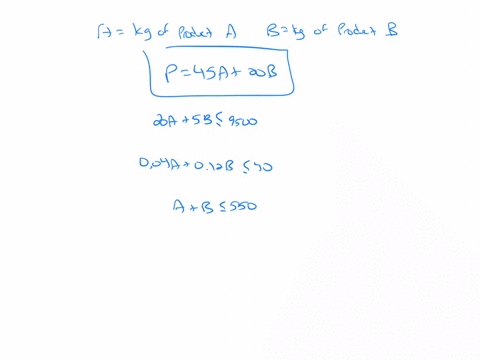 A = kg of Product A B = kg of Product B
P = 45A + 20B
20A + 5B ≤ 9500
0.04A + 0.12B ≤ 40
A + B ≤ 550